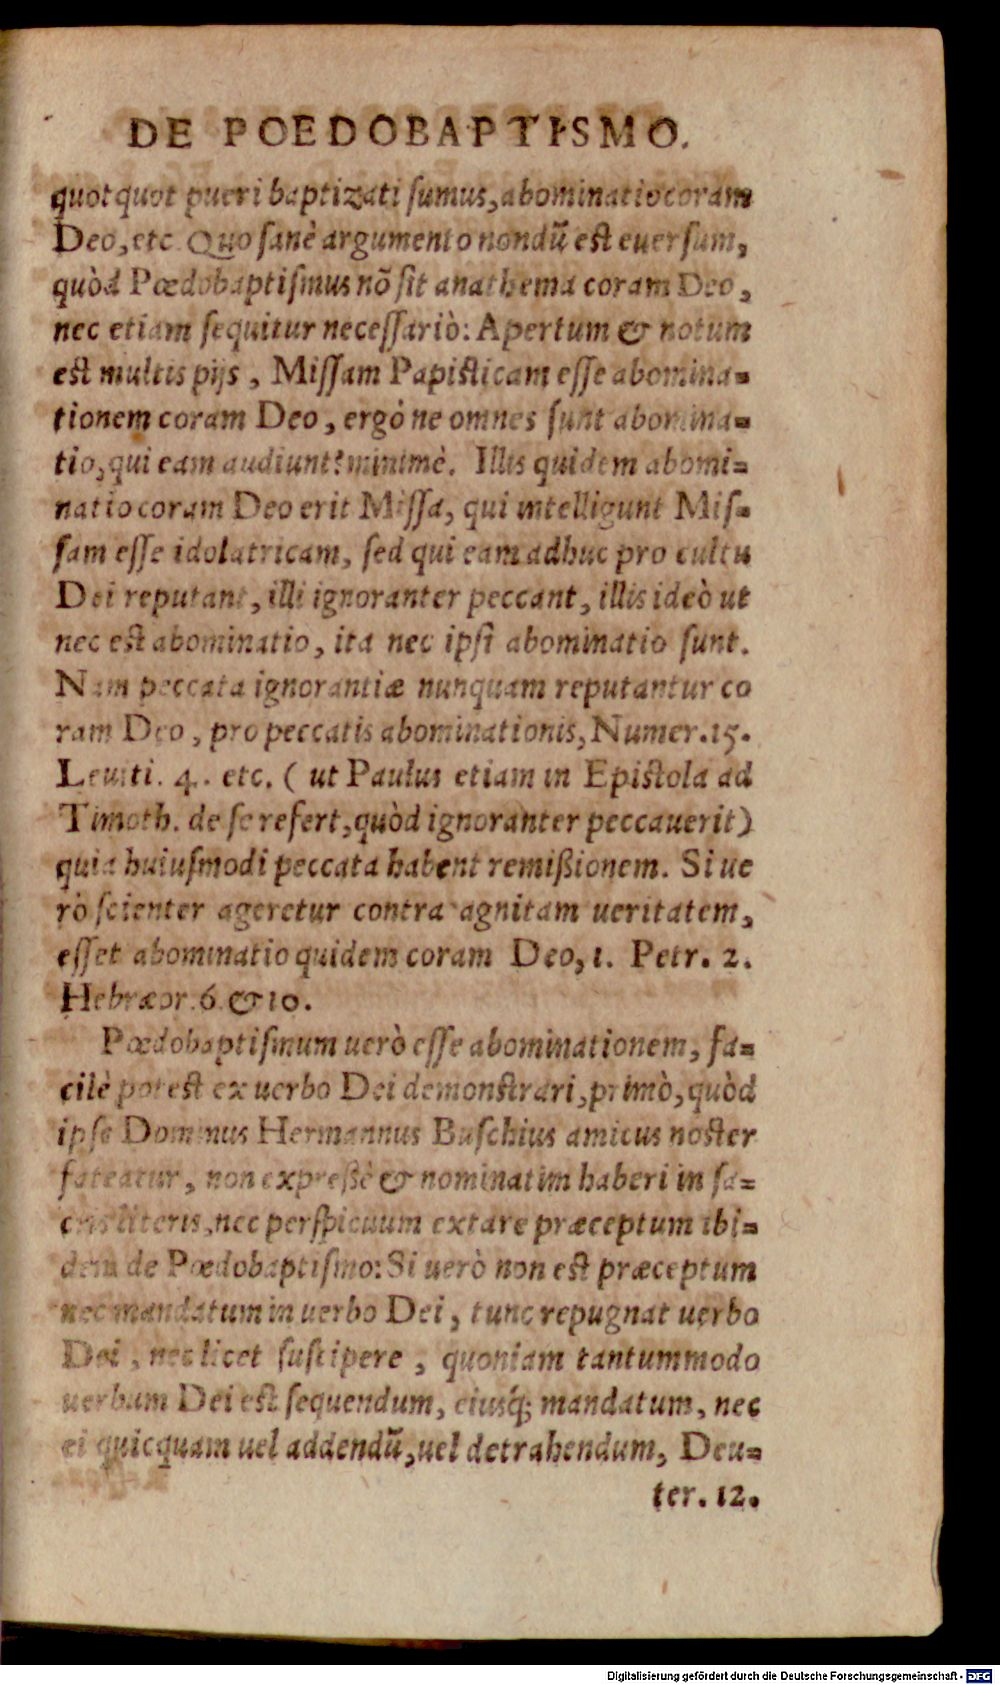 DE POEDOBAPTISMO.
quotquot pueri baptizati sumus, abominatio coram
Deo, etc. Quo sanè argumento nondũ est euersum,
quòd Pœdobaptismus nõ sit anathema coram Deo,
nec etiam sequitur necessariò: Apertum & notum
est multis pijs, Missam Papisticam esse abomina-
tionem coram Deo, ergò ne omnes sunt abomina-
tio, qui eam audiunt? minimè. Illis quidem abomi-
natio coram Deo erit Missa, qui intelligunt Mis-
sam esse idolatricam, sed qui eam adhuc pro cultu
Dei reputant, illi ignoranter peccant, illis ideò ut
nec est abominatio, ita nec ipsi abominatio sunt.
Nam peccata ignorantiæ nunquam reputantur co
ram Deo, pro peccatis abominationis, Numer. 15.
Leuiti. 4. etc. (ut Paulus etiam in Epistola ad
Timoth. de se refert, quòd ignoranter peccauerit)
quia huiusmodi peccata habent remißionem. Si ue
rò scienter ageretur contra agnitam ueritatem,
esset abominatio quidem coram Deo, 1. Petr. 2.
Hebræor. 6. & 10.
Pœdobaptismum uerò esse abominationem, fa-
cilè potest ex uerbo Dei demonstrari, primò, quòd
ipse Dominus Hermannus Buschius amicus noster
fateatur, non expreßè & nominatim haberi in sa-
cris literis, nec perspicuum extare præceptum ibi-
dem de Pœdobaptismo: Si uerò non est præceptum
nec mandatum in uerbo Dei, tunc repugnat uerbo
Dei, nec licet suscipere, quoniam tantummodo
uerbum Dei est sequendum, eiusq́; mandatum, nec
ei quicquam uel addendũ, uel detrahendum, Deu-
ter. 12.
Digitalisierung gefördert durch die Deutsche Forschungsgemeinschaft - DFG